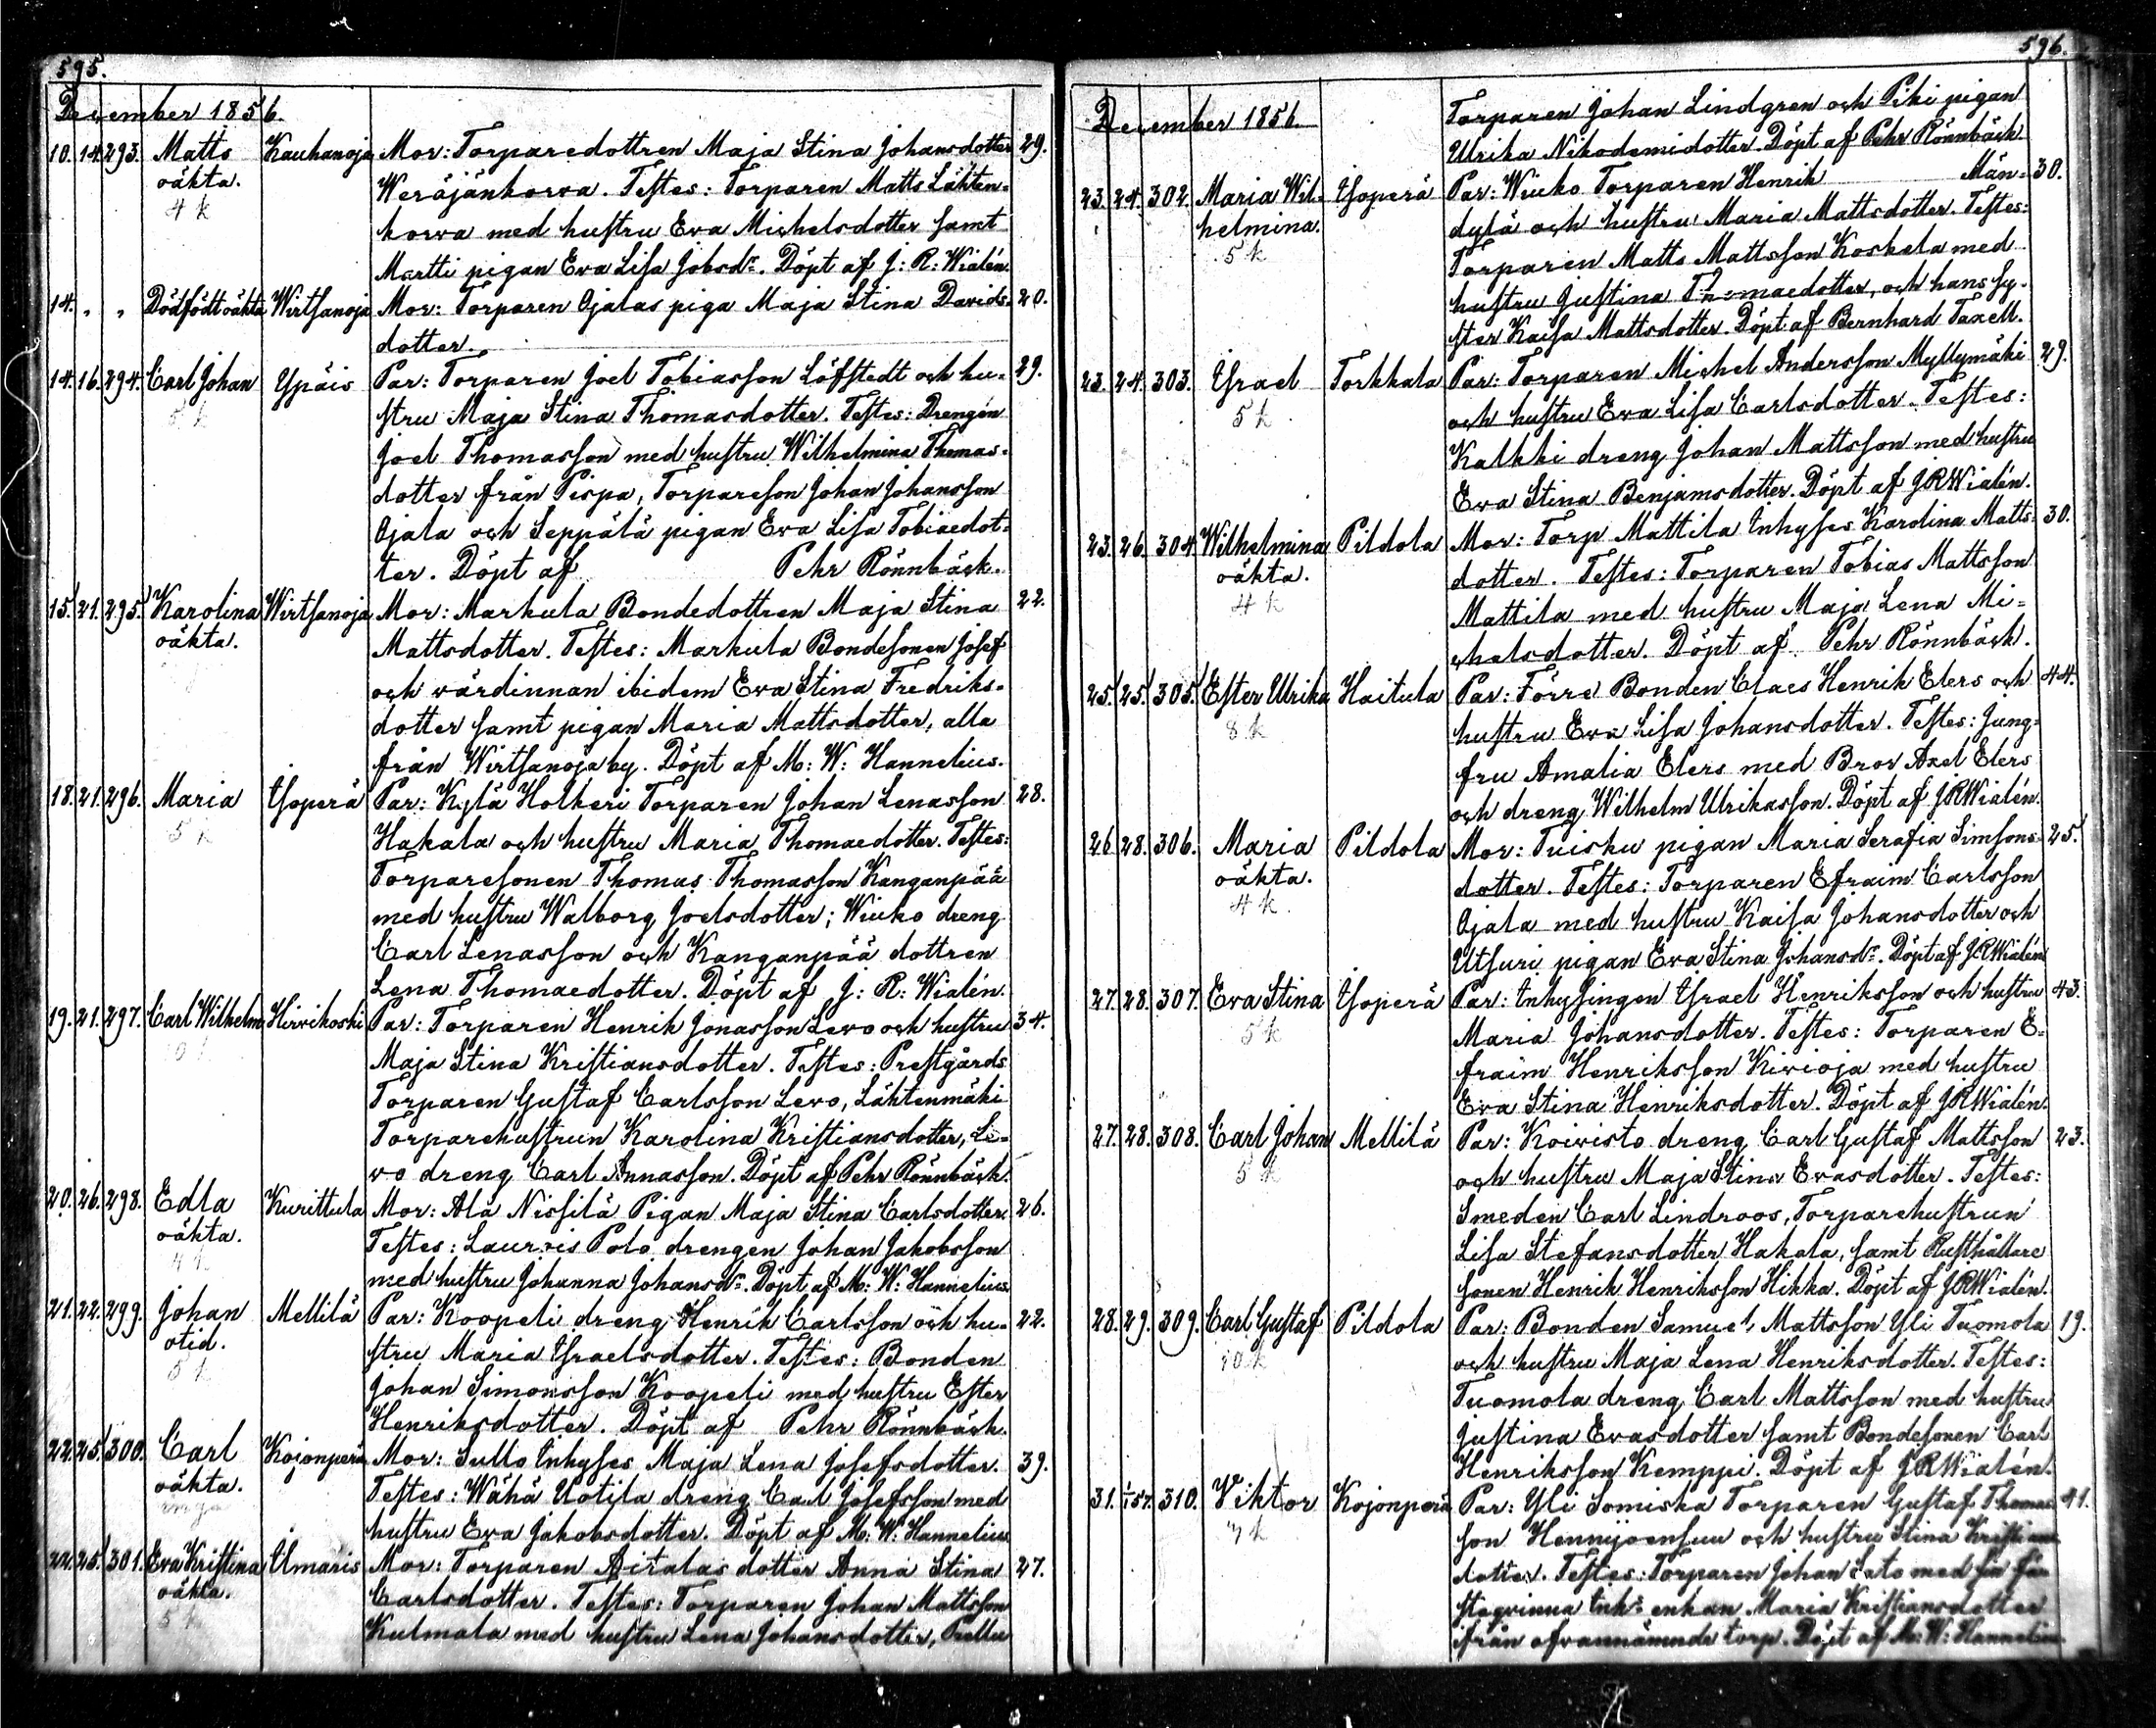 595.
December 1856.
10. 14. 293. Matts Kauhanoja Mor: Torparedottren Maja Stina Johansdotter 29.
oäkta. Weräjänkorva. Testes: Torparen Matts Lähten-
4 k korva med hustru Eva Michelsdotter samt
Martti pigan Eva Lisa Jobsdr. Döpt af J: R: Wialén.
14. „ „ Dödfödt oäkta Wirtsanoja Mor: Torparen Ojalas piga Maja Stina Davids- 20.
dotter.
14. 16. 294. Carl Johan Ypäis Par: Torparen Joel Tobiasson Löfstedt och hu- 29.
5 k stru Maja Stina Thomasdotter. Testes: Drengen
Joel Thomasson med hustru Wilhelmina Thomas-
dotter från Pispa, Torpareson Johan Johansson
Ojala och Seppälä pigan Eva Lisa Tobiaedot-
ter. Döpt af Pehr Rönnbäck.
15. 21. 295. Karolina Wirtsanoja Mor: Markula Bondedottren Maja Stina 22.
oäkta. Mattsdotter. Testes: Markula Bondesonen Josef
och värdinnan ibidem Eva Stina Fredriks-
dotter samt pigan Maria Mattsdotter, alla
från Wirtsanoja by. Döpt af M: W: Hannelius.
18. 21. 296. Maria Isoperä Par: Kylä Holkeri Torparen Johan Lenasson 28.
5 k Hakala och hustru Maria Thomaedotter. Testes:
Torparesonen Thomas Thomasson Kanganpää
med hustru Walborg Joelsdotter; Wiuko dreng
Carl Lenasson och Kanganpää dottren
Lena Thomaedotter. Döpt af J: R: Wialén.
19. 21. 297. Carl Wilhelm Hirvikoski Par: Torparen Henrik Jonasson Levo och hustru 34.
Maja Stina Kristiansdotter. Testes: Prestgårds
Torparen Gustaf Carlsson Levo, Lähtenmäki
Torparehustrun Karolina Kristiansdotter, Le-
vo dreng Carl Annasson. Döpt af Pehr Rönnbäck.
20. 26. 298. Edla Kurittula Mor: Ala Nissilä Pigan Maja Stina Carlsdotter. 26.
oäkta. Testes: Laurois Polo drengen Johan Jakobsson
4 k med hustru Johanna Johansdr. Döpt af M: W: Hannelius.
21. 22. 299. Johan Mellilä Par: Koopeli dreng Henrik Carlsson och hu- 22.
otid. stru Maria Israelsdotter. Testes: Bonden
5 k Johan Simonsson Koopeli med hustru Ester
Henriksdotter. Döpt af Pehr Rönnbäck.
22. 25. 300. Carl Kojonperä Mor: Sullo Inhyses Maja Lena Josefsdotter. 39.
oäkta. Testes: Wähä Uotila dreng Carl Josefsson med
inga hustru Eva Jakobsdotter. Döpt af M: W: Hannelius
22. 25. 301. Eva Kristina Umaris Mor: Torparen Aitalas dotter Anna Stina 27.
oäkta. Carlsdotter. Testes: Torparen Johan Mattsson
5 k Kulmala med hustru Lena Johansdotter, Prellu
596.
December 1856.
Torparen Johan Lindgren och Piki pigan
Ulrika Nikodemidotter. Döpt af Pehr Rönnbäck.
23. 24. 302. Maria Wil- Isoperä Par: Wiuko Torparen Henrik Män- 30.
helmina. dylä och hustru Maria Mattsdotter. Testes:
5 k Torparen Matts Mattsson Koskela med
hustru Gustina Thomaedotter, och hans sy-
ster Kaisa Mattsdotter. Döpt af Bernhard Taxell.
23. 24. 303. Israel Torkkala Par: Torparen Michel Andersson Myllymäki 29.
5 k och hustru Eva Lisa Carlsdotter. Testes:
Kalkki dreng Johan Mattsson med hustru
Eva Stina Benjamsdotter. Döpt af JRWialén.
23. 26. 304. Wilhelmina Pildola Mor: Torp Mattila Inhyses Karolina Matts- 30.
oäkta. dotter. Testes: Torparen Tobias Mattsson
4 k Mattila med hustru Maja Lena Mi-
chelsdotter. Döpt af Pehr Rönnbäck.
25. 25. 305. Ester Ulrika Haitula Par: Förre Bonden Claes Henrik Elers och 44.
8 k hustru Eva Lisa Johansdotter. Testes: Jung-
fru Amalia Elers med Bror Axel Elers
och dreng Wilhelm Ulrikasson. Döpt af JRWialén.
26. 28. 306. Maria Pildola Mor: Tuisku pigan Maria Serafia Simsons- 25.
oäkta. dotter. Testes: Torparen Efraim Carlsson
4 k. Ojala med hustru Kaisa Johansdotter och
Utsuri pigan Eva Stina Johansdr. Döpt af J.RWialén
27. 28. 307. Eva Stina Isoperä Par: Inhysingen Israel Henriksson och hustru 43.
5 k Maria Johansdotter. Testes: Torparen E-
fraim Henriksson Kivioja med hustru
Eva Stina Henriksdotter. Döpt af JRWialén.
27. 28. 308. Carl Johan Mellilä Par: Koivisto dreng Carl Gustaf Mattsson 23.
5 k och hustru Maja Stina Evasdotter. Testes:
Smeden Carl Lindroos, Torparehustrun
Lisa Stefansdotter Hakala, samt Rusthållare
sonen Henrik Henriksson Hikka. Döpt af JRWialén.
28. 29. 309. Carl Gustaf Pildola Par: Bonden Samuel Mattsson Yli Tuomola 19.
10 k och hustru Maja Lena Henriksdotter. Testes:
Tuomola dreng Carl Mattsson med hustru
Justina Evasdotter samt Bondesonen Carl
Henriksson Kemppi. Döpt af JRWialén.
31. 1/1 57. 310. Viktor Kojonperä Par: Yli Somiska Torparen Gustaf Thomas- 41.
7 k son Hennijoensuu och hustru Stina Kristians
dotter. Testes: Torparen Johan Lato med sin fä-
steqvinna Inhs enkan Maria Kristiansdotter
ifrån ofvannämnde torp. Döpt af M: W: Hannelius